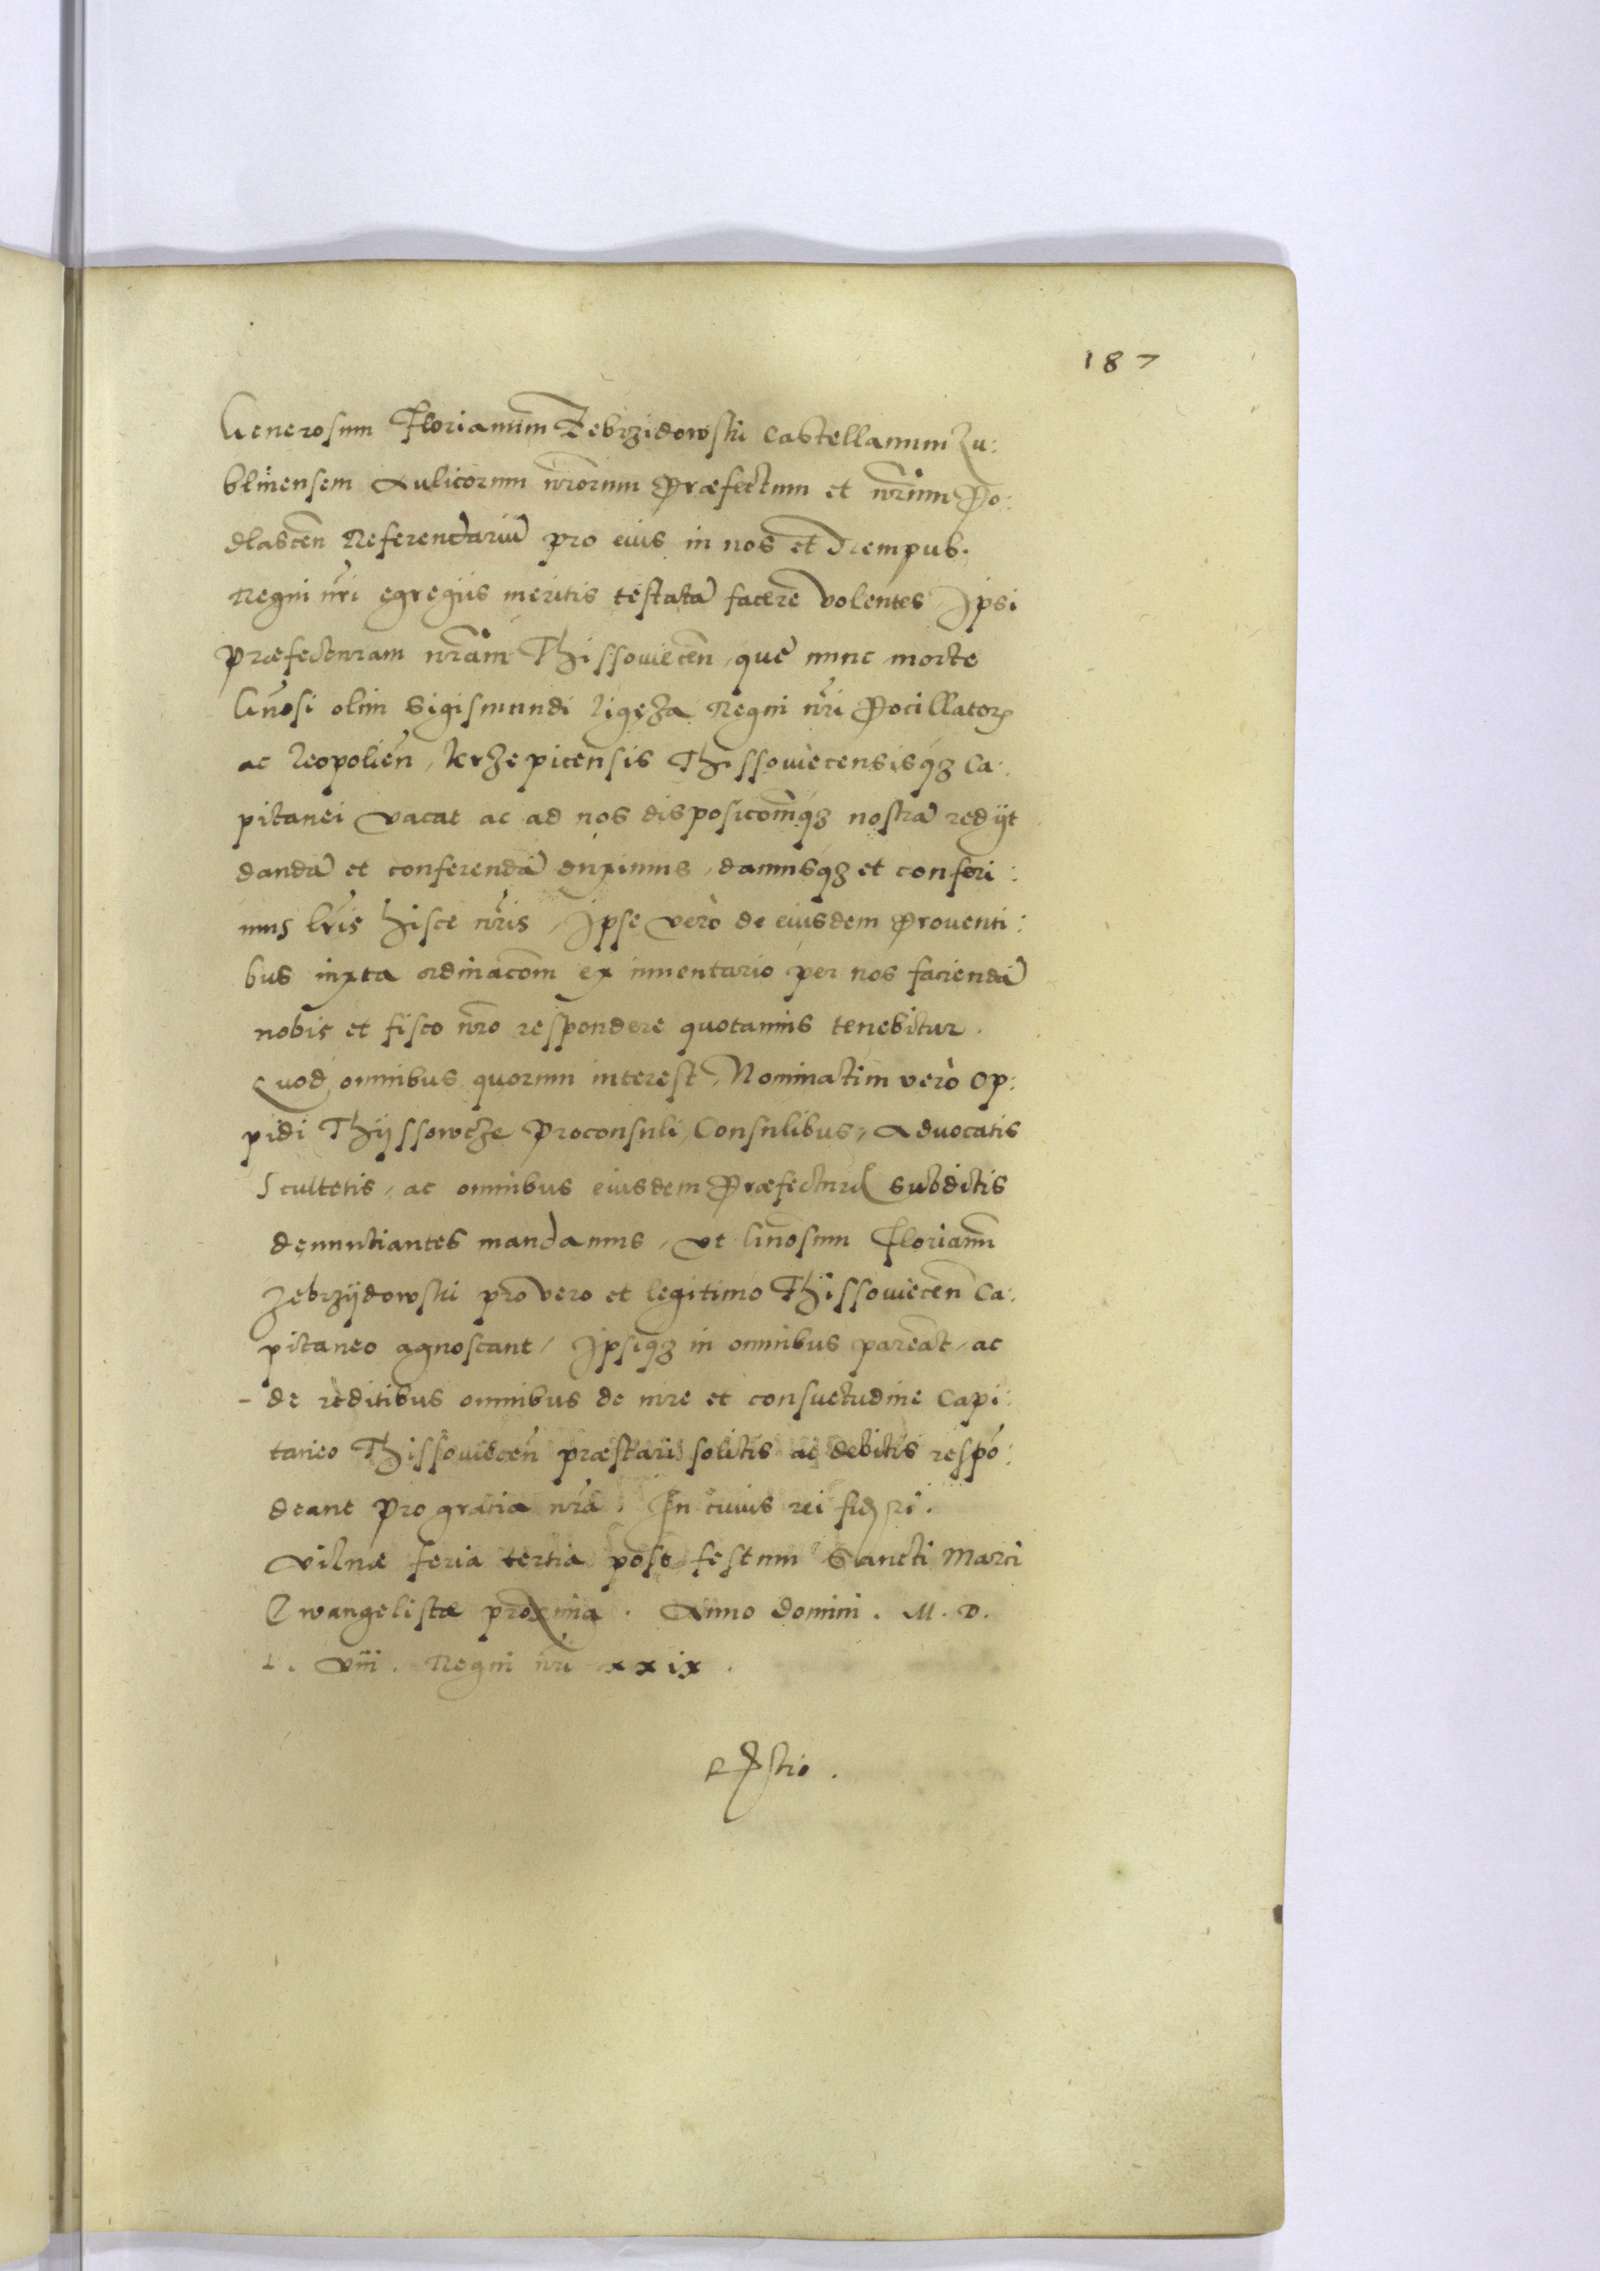 187
Generosum Florianum Zebrzidowski Castellanum Lu:
blinensem Aulicorum nr̃orum Præfectum et nr̃um Po:
dlascen̄ Referendariũ pro eius in nos et Rempub.
Regni nr̃i egregiis meritis testatã facere volentes Ipsi
præfecturam nr̃am Thissouiecen̄, que nunc morte
Gn̄osi olim Sigismundi Ligęza Regni nr̃i Pocillatoꝝ
ac Leopolien̄, Krzepicensis Thissouiecensisqꝫ Ca:
pitanei vacat ac ad nos disposicom̄qꝫ nostrã redijt
dandã et conferendã duximus, damusqꝫ et conferi:
mus lr̃is hisce nr̃is, Ipse verò de eiusdem Prouenti:
bus iuxta ordinacom̄ ex inuentario per nos faciendã
nobis et fisco nr̃o respondere quotannis tenebitur.
Quod omnibus quorum interest, Nominatim verò Op:
pidi Thyssowcze Proconsuli, Consulibus, Aduocatis
Scultetis, ac omnibus eiusdem Præfecturę subditis
denunctiantes mandamus, vt Gn̄osum Florianũ
Zebrzydowski pro vero et legitimo Thissouiecen̄ Ca:
pitaneo agnoscant, Ipsiqꝫ in omnibus pareãt, ac
- de reditibus omnibus de iure et consuetudine Capi:
taneo Thissouiecen̄ præstari solitis ac debitis respõ:
deant pro gratia nr̃a. In cuius rei fidꝫ ꝛc̃.
Vilnæ feria tertia post festum Sancti Marci
Ewangelistæ proxima. Anno domini. M. D.
L. viii. Regni nr̃i xxix.